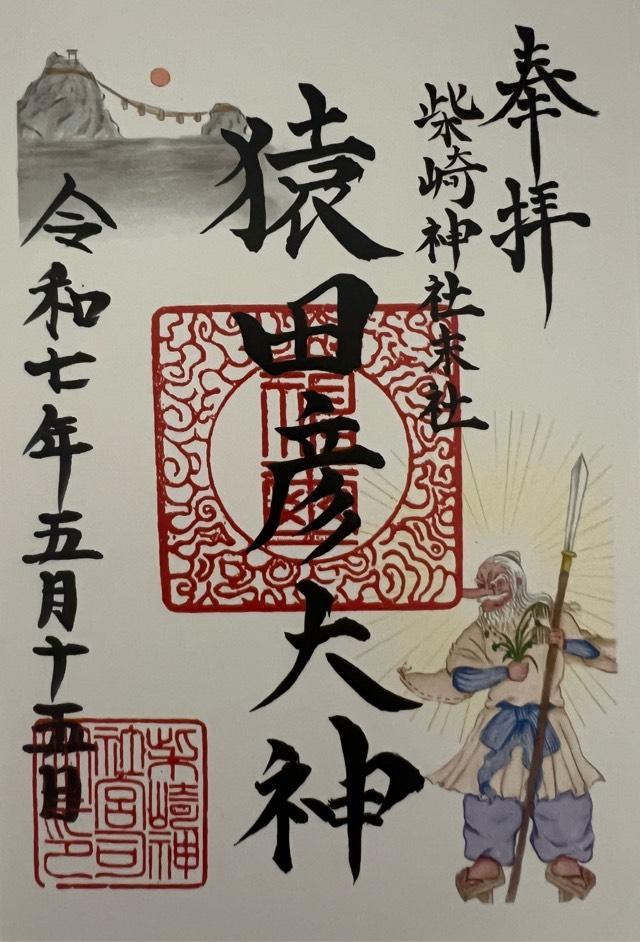 奉拝
柴崎神社末社
猿田彦大神
令和七年五月十五日
柴崎神
社宮司